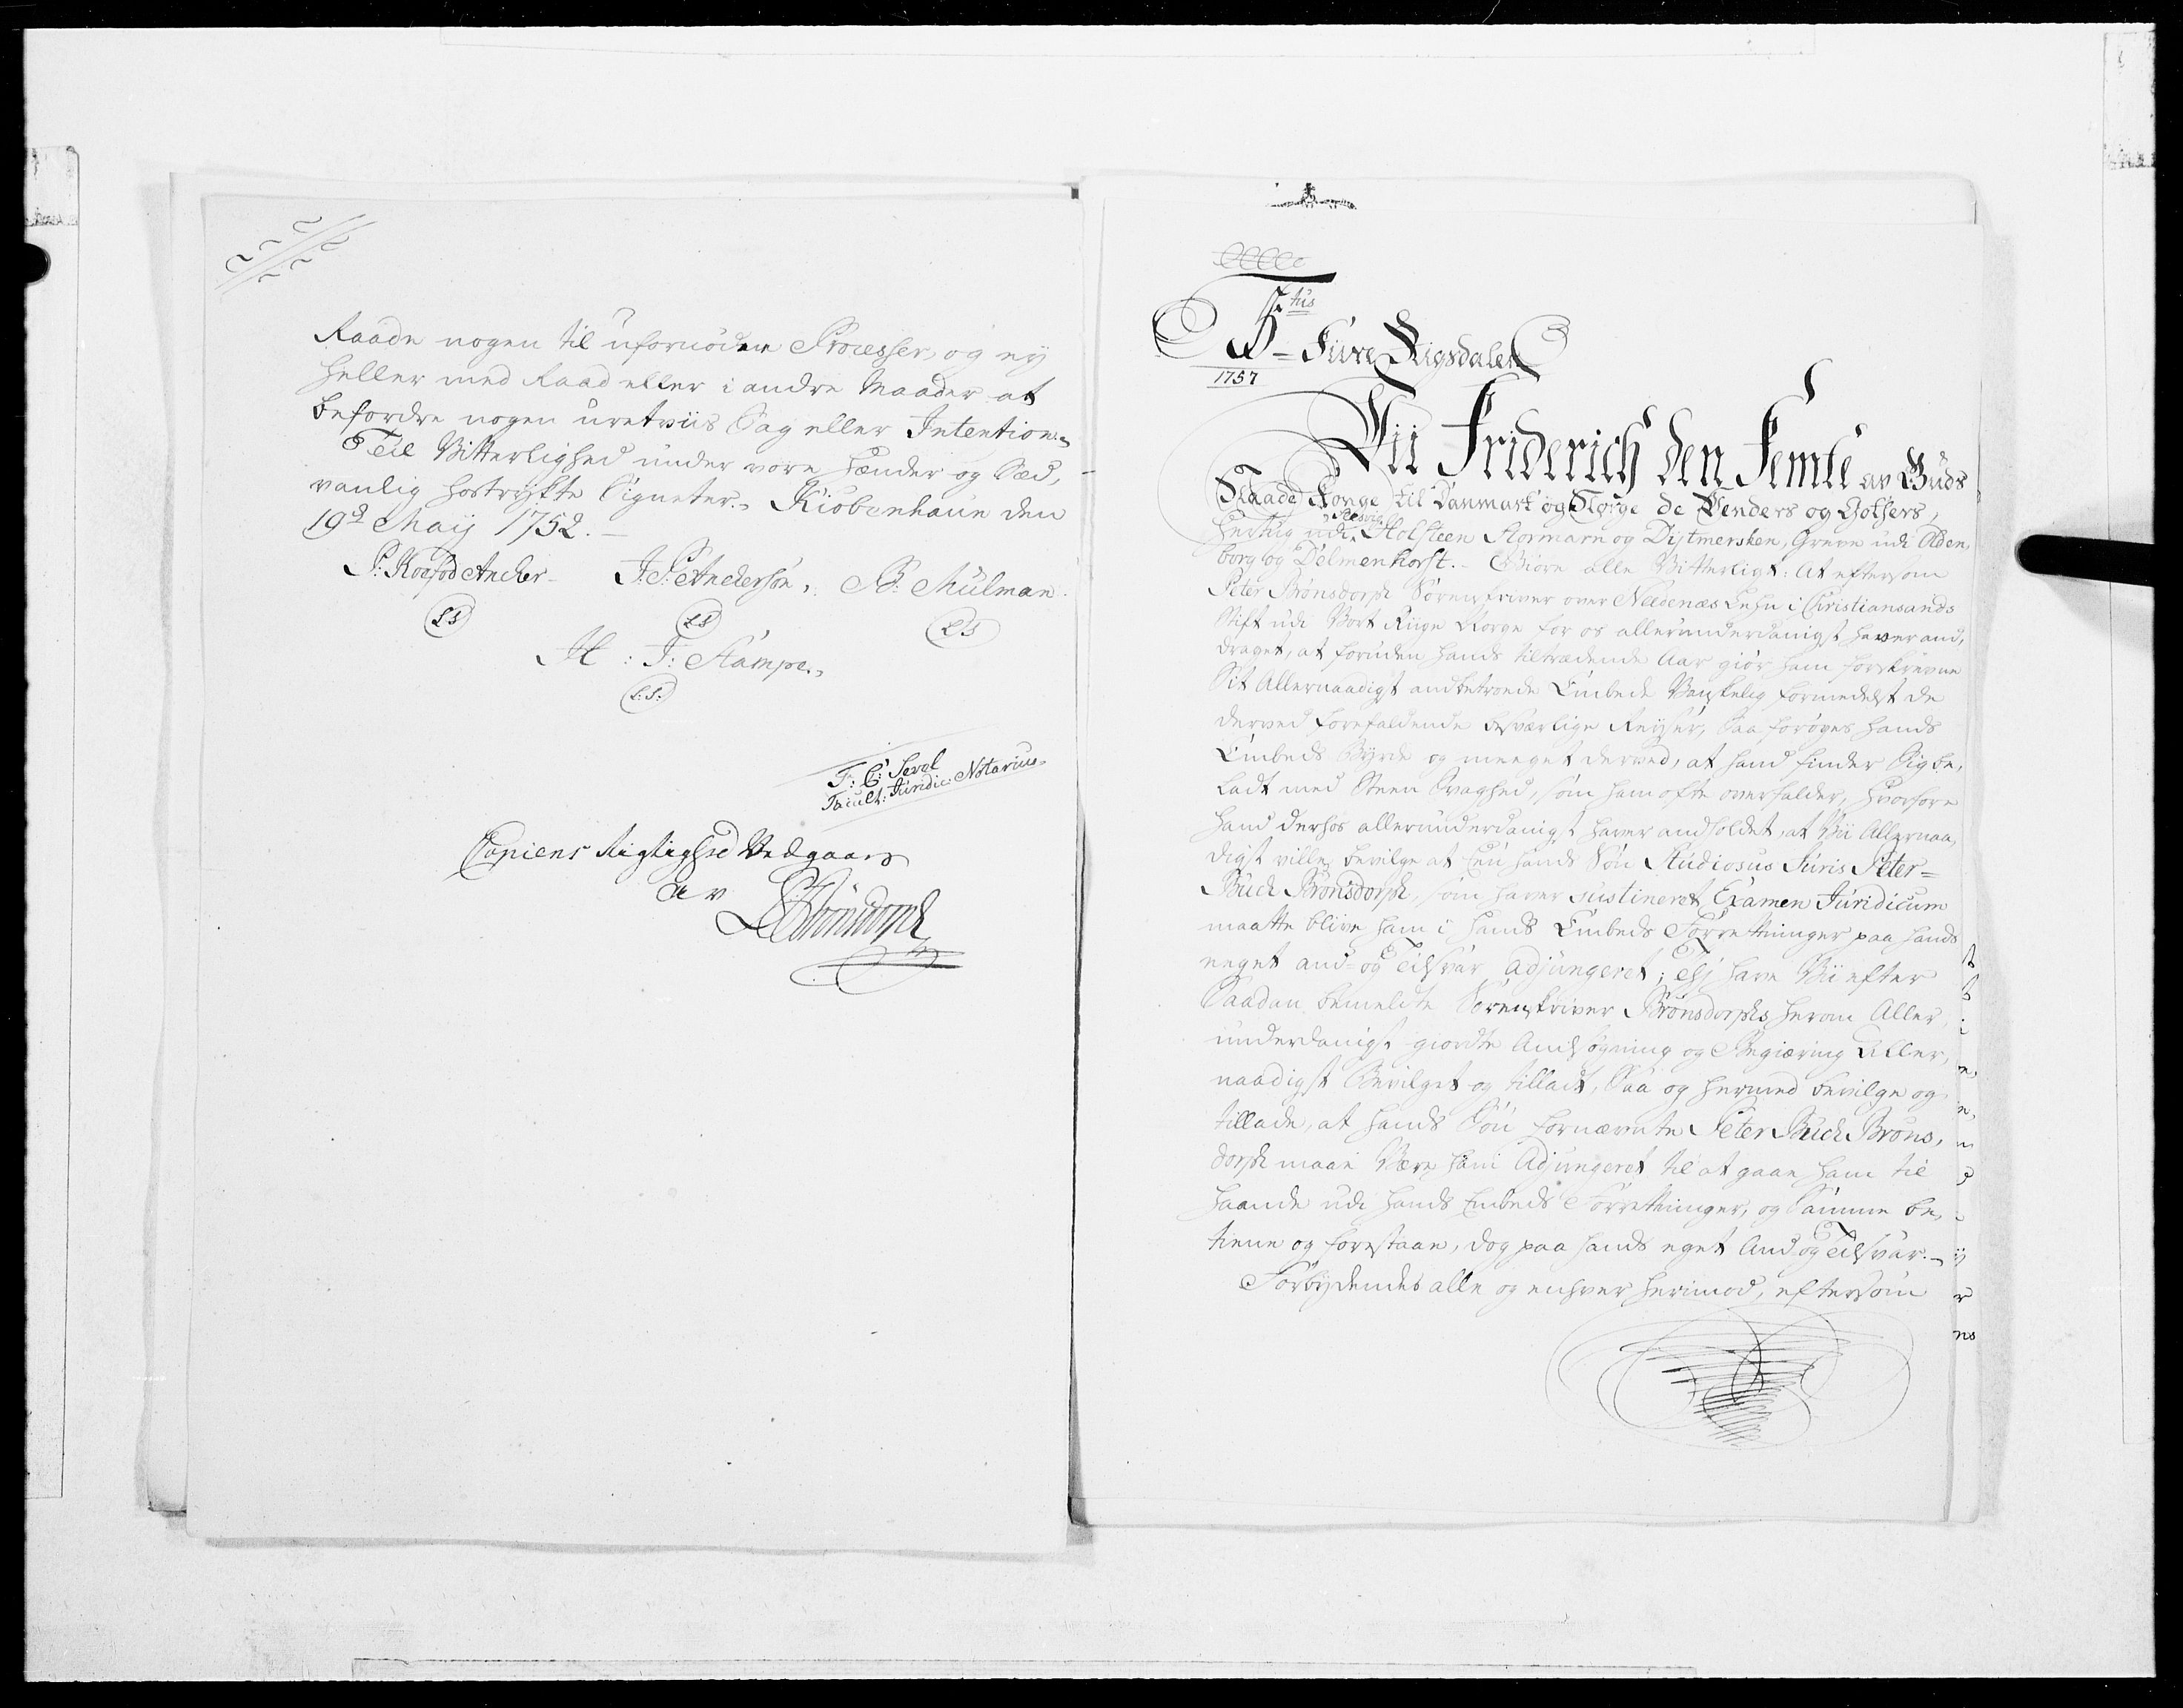 Raade nogen til ufornöden Processer, og ey
heller med Raad eller i andre Maader at
befordre nogen uretviis Sag eller Intention.
Til Vitterlighed under vore Hænder og Sæd,
vanlig hostrykte Signeter. Kiöbenhaun den
19d Maij 1752.
P: Kofod Ancher J: P: Anchersön. B: Mülman.
LS LS LS
H: F: Stampe.
L:S:
F: C: Sevel
Facult: Juridic: Notarius.
Copiens Rigtighed Vedgaaes
av
PBrönsdorph
5tus
Fiire Rigsdaler
1757
Vii Friderich den Femte av Guds
Naade Konge til Danmark og Norge de Venders og Gothers,
Slesvig
Hertug udi Holsteen Stormarn og Dytmersken, Greve udi Olden,
borg og Delmenhorst. Giöre alle Vitterligt: At eftersom
Peter Brönsdorph Sörenskriver over Nedenæs Lehn i Christiansands
Stift udi Vort Riige Norge for os allerunderdanigst haver and,
draget, at foruden hands tiltrædende Aar giör ham forskrevne
Sit Allernaadigst andbetroede Embede Vanskelig formedelst de
derved forefaldende besværlige Reyser, Saa foröges hands
Embeds Byrde og meeget derved, at hand finder Sig be,
ladt med Steen Svaghed, som ham ofte overfalder, hvorfore
hand derhos allerunderdanigst haver andholdet, at Vii Allernaa,
digst ville bevilge at hands Sön Studiosus Juris Peter=
Buch Brönsdorph, som haver sustineret Examen Juridicum
maatte blive ham i hands Embeds Forretninger paa hands
eeget and= og Tilsvar adjungeret; Thj have Vii efter
Saadan bemeldte Sörenskriver Brönsdorphs herom Aller,
underdanigst giordte Andsögning og Begiæring Aller,
naadigst Bevilget og tilladt, Saa og hermed bevilge og
tillade, at hands Sön fornævnte Peter Buch Bröns,
dorph maae Være ham Adjungeret til at gaae ham til
haande udi hands Embeds Forretninger, og Samme be,
tiene og forestaae, dog paa hands eget And og Tilsvar.
Forbydendes alle og enhver herimod, eftersom